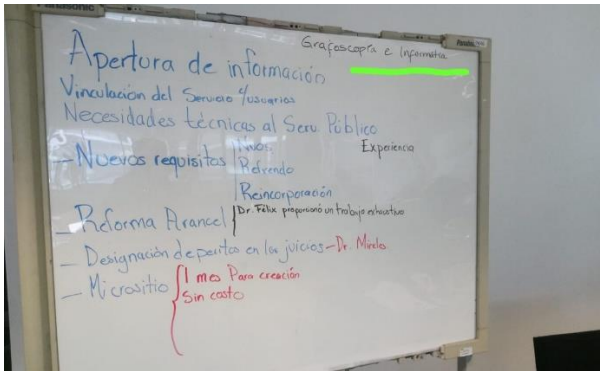 Panasonic
Panasonic
Grafoscopía e Informática
Apertura de información
Vinculación del Servicio /usuarios
Necesidades técnicas al Serv. Público
– Nuevos requisitos
Nvos.
Experiencia
Refrendo
Reincorporación
– Reforma Arancel { Dr. Félix proporcionó un trabajo exhaustivo
– Designación de peritos en los juicios – Dr. Mirelo
– Micrositio { 1 mes Para creación
Sin costo